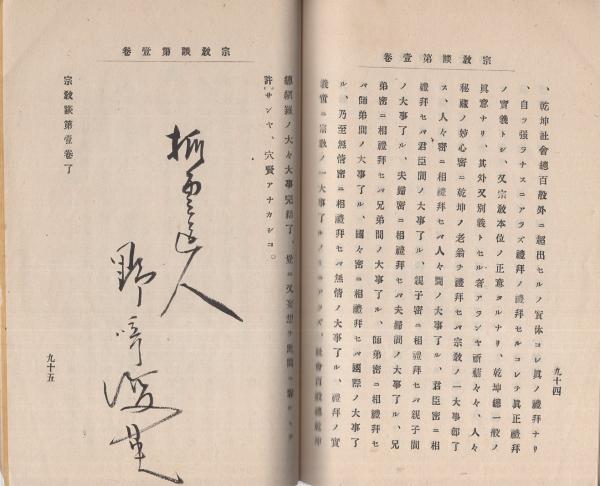 宗敎談第壹卷
、乾坤社會總百般外ニ超出セルノ實体コレ眞ノ禮拜ナリ
、自ッ張ヲナスニアラズ禮拜ノ禮拜セルコレヲ眞正禮拜
ノ實義トシ、又宗敎本位ノ正意ヲルナリ、乾坤總一般ノ
眞意ナリ、其外又別義トセル者アランヤ祈薦々々、人々
秘藏ノ妙心密ニ乾坤ノ老翁ヲ禮拜セバ宗敎ノ一大事都了
ス、人々密ニ相禮拜セバ人々間ノ大事了ル、君臣密ニ相
禮拜セバ君臣間ノ大事了ル、親子密ニ相禮拜セバ親子間
ノ大事了ル、夫婦密ニ相禮拜セバ夫婦間ノ大事了ル、兄
弟密ニ相禮拜セバ兄弟間ノ大事了ル、師弟密ニ相禮拜セ
バ師弟間ノ大事了ル、國々密ニ相禮拜セバ國際ノ大事了
ル、乃至無情密ニ相禮拜セバ無情ノ大事了ル、禮拜ノ實
義實ニ宗敎ノ一大事了ルノミニアラズ、社會百般總乾坤
九十四
宗敎談第壹卷
總網羅ノ大々大事完結了、豈ニ又妄想ヲ世間ニ
許サンヤ、穴賢アナカシコ。
道人
野
宗敎談第壹卷了
九十五